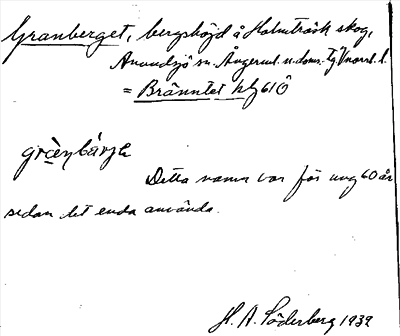 Granberget, bergshöjd å Holmträsk skog,
Anundsjö sn. Ångerml. n. doms. tg Vnorrl. l.
= Bränntet kbg 61 Ö
grènbärjə
Detta namn var för ung 60 år
sedan det enda använda.
H. A. Söderberg 1932